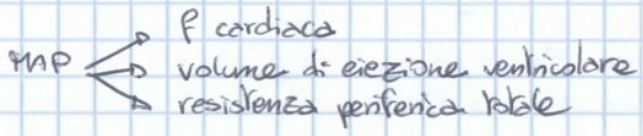 f cardiaca
MAP volume di eiezione ventricolare
resistenza periferica totale